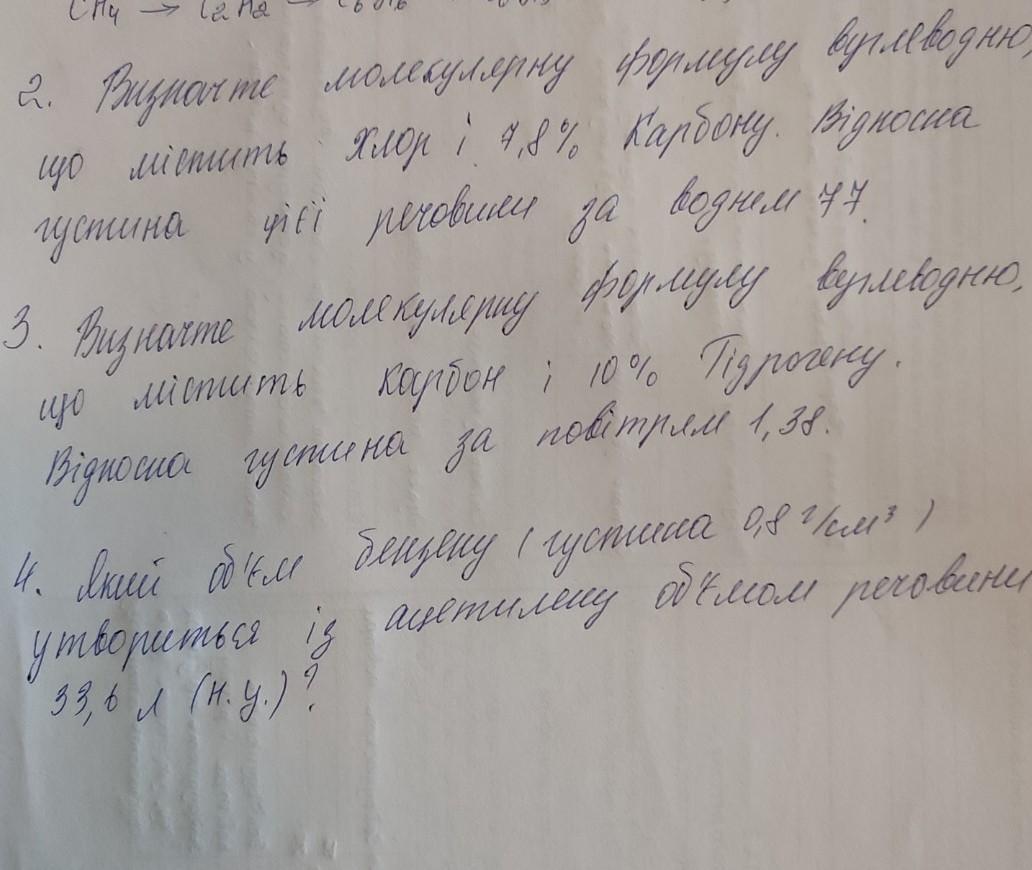 CH4 → C2H2 → C6H6
2. Визначте молекулярну формулу вуглеводню,
що містить хлор і 7,8% Карбону. Відносна
густина цієї речовини за воднем 77.
3. Визначте молекулярну формулу вуглеводню,
що містить карбон і 10% Гідрогену.
Відносна густина за повітрям 1,38.
4. Який об'єм бензену (густина 0,8 г/см³)
утвориться із ацетилену об'ємом речовини
33,6 л (н.у.)?